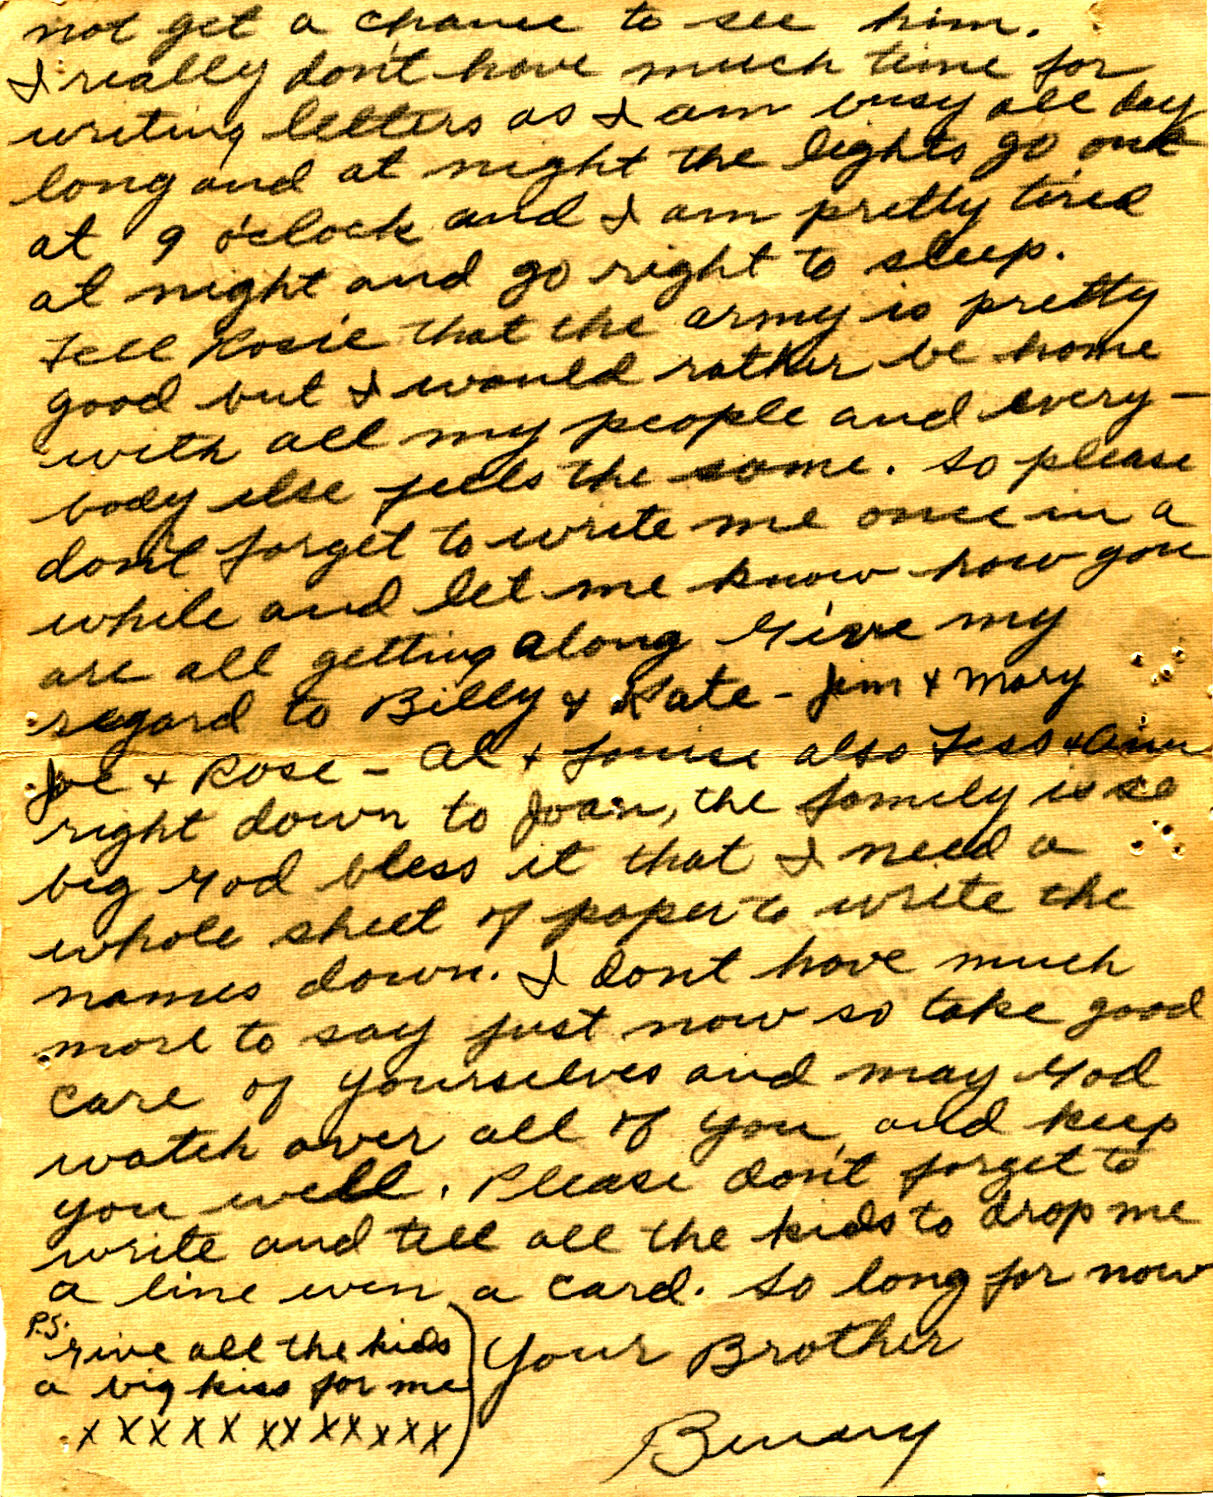 not get a chance to see him.
I really don't have much time for
writing letters as I am busy all day
long and at night the lights go out
at 9 o'clock and I am pretty tired
at night and go right to sleep.
Tell Rosie that the army is pretty
good but I would rather be home
with all my people and every-
body else feels the same. So please
don't forget to write me once in a
while and let me know how you
are all getting along Give my
regard to Billy & Kate - Jim & Mary
Joe & Rose - Al & Louise also Tess & Ann
right down to Joan, the family is so
big God bless it that I need a
whole sheet of paper to write the
names down. I dont have much
more to say just now so take good
care of yourselves and may God
watch over all of you and keep
you well. Please don't forget to
write and tell all the kids to drop me
a line even a card. So long for now
Your Brother
Benny
P.S.
Give all the kids
a big kiss for me
x x x x x x x x x x x x